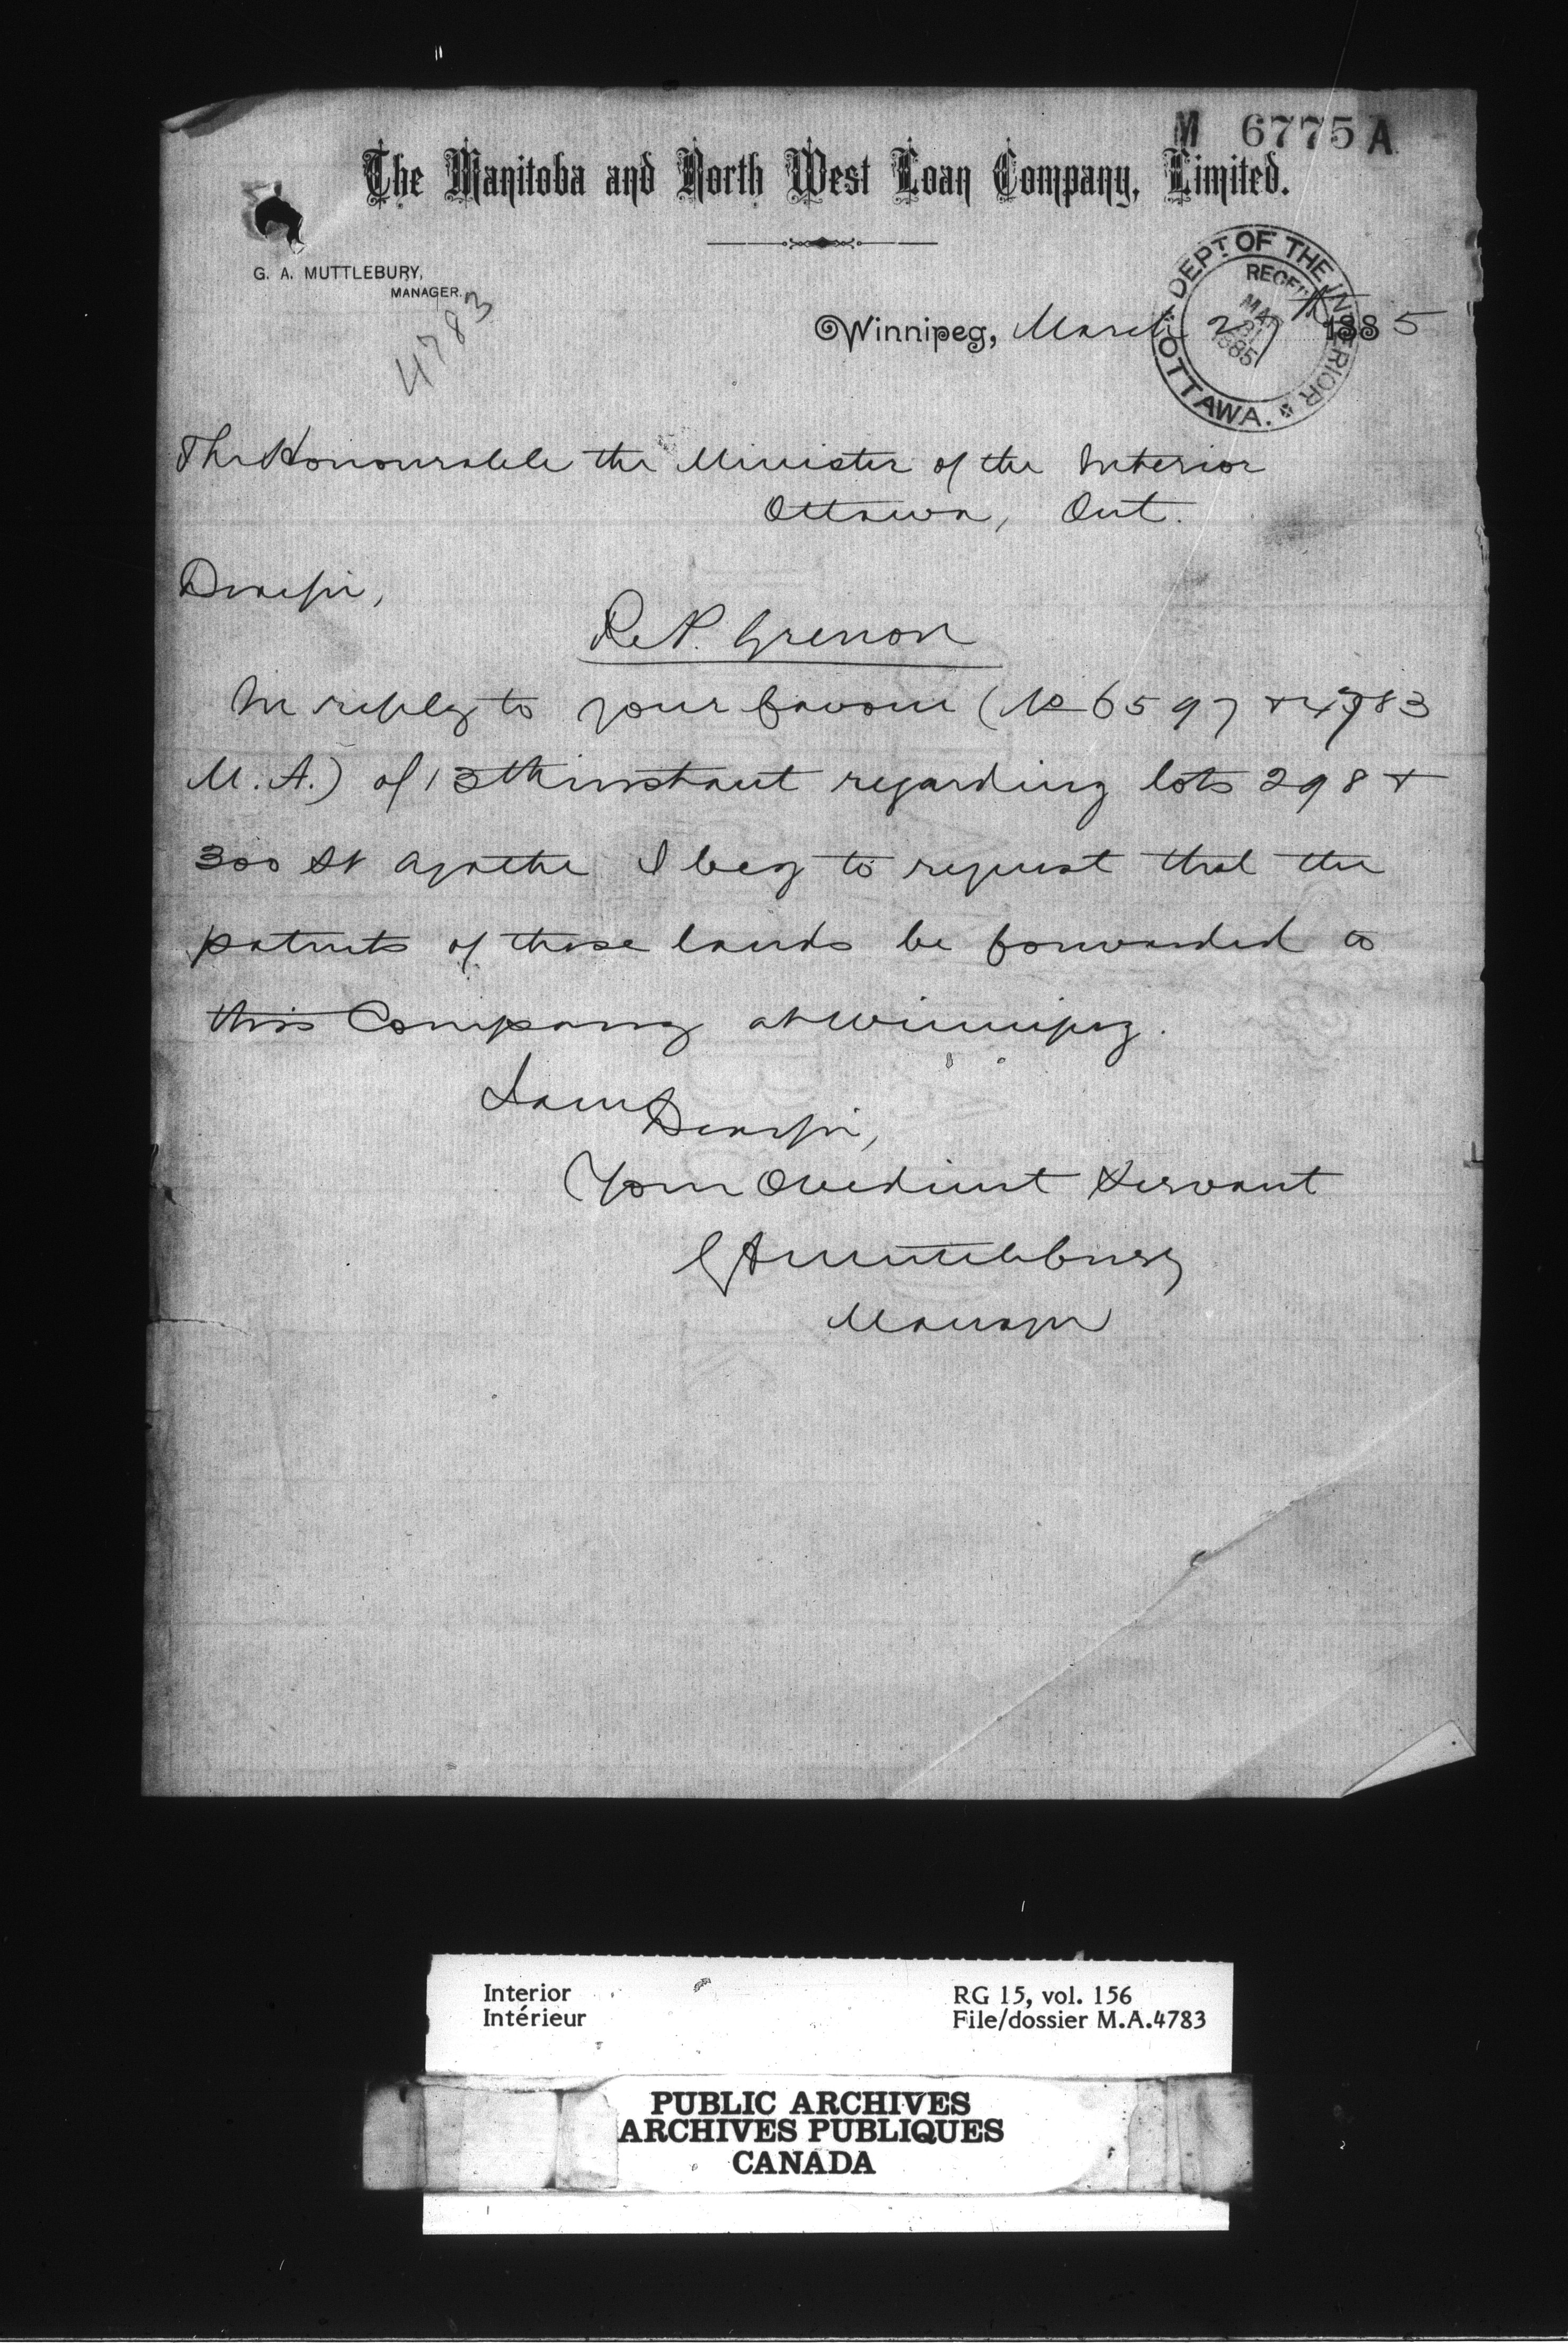 M 6775 A
The Manitoba and North West Loan Company, Limited.
G. A. MUTTLEBURY,
MANAGER.
4783
DEPT OF THE INTERIOR
OTTAWA.
MAR
31
1885
Winnipeg, March 27th 1885
The Honourable the Minister of the Interior
Ottawa, Ont.
Dear Sir,
Re P. Grenon
In reply to your favour (No 6597 & 4783
M. A.) of 13th instant regarding lots 298 &
300 St Agathe I beg to request that the
patents of those lands be forwarded to
this Company at Winnipeg.
I am
Dear Sir,
Your Obedient Servant
G A Muttlebury
Manager
Interior
Intérieur
RG 15, vol. 156
File/dossier M.A.4783
PUBLIC ARCHIVES
ARCHIVES PUBLIQUES
CANADA